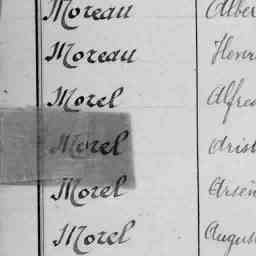 Moreau Alber
Moreau Henr
Morel Alfre
Morel Arist
Morel Arsèn
Morel August